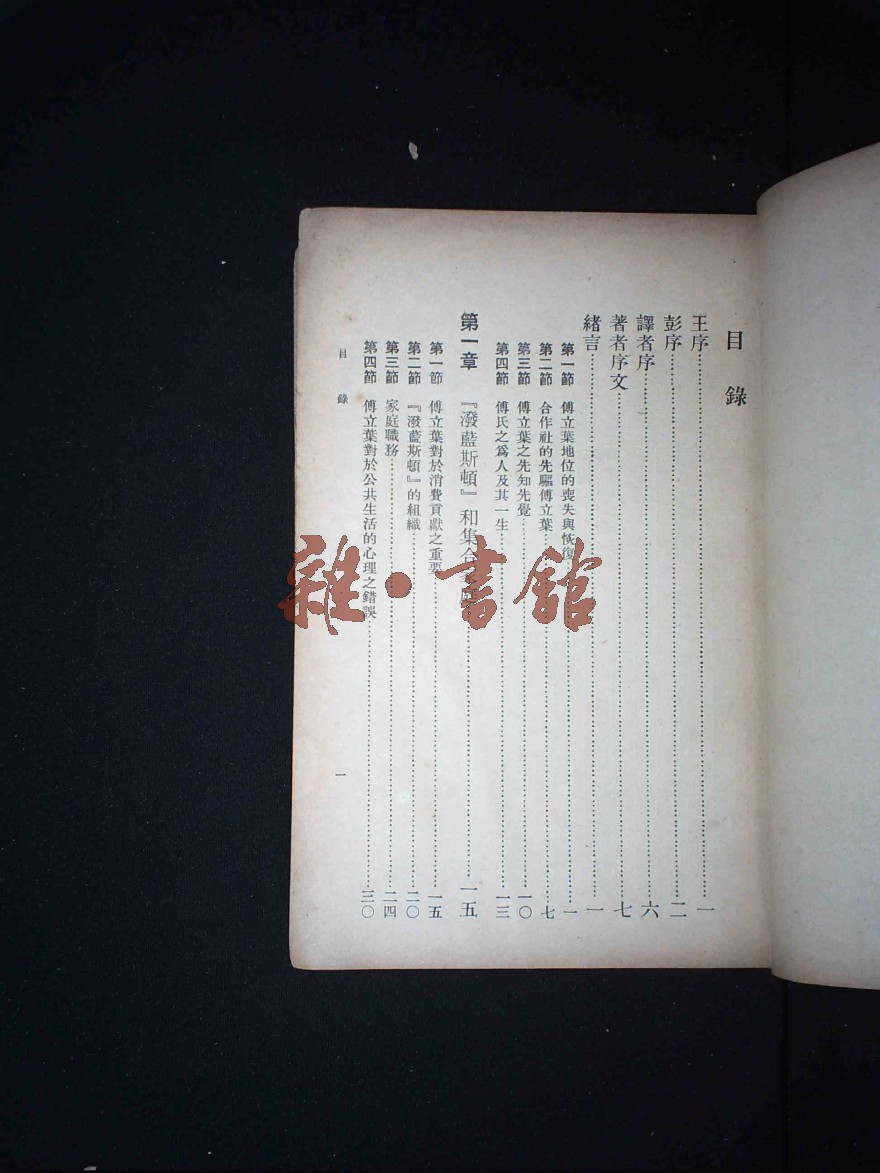 目錄
王序⋯⋯一
彭序⋯⋯二
譯者序⋯⋯六
著者序文⋯⋯七
緒言⋯⋯一
第一節 傅立葉地位的喪失與恢復⋯⋯一
第二節 合作社的先驅傅立葉⋯⋯七
第三節 傅立葉之先知先覺⋯⋯一〇
第四節 傅氏之爲人及其一生⋯⋯一三
第一章 『潑藍斯頓』和集合家庭⋯⋯一五
第一節 傅立葉對於消費貢獻之重要⋯⋯一五
第二節 『潑藍斯頓』的組織⋯⋯二〇
第三節 家庭職務⋯⋯二四
第四節 傅立葉對於公共生活的心理之錯誤⋯⋯三〇
目錄
一
雜·書館